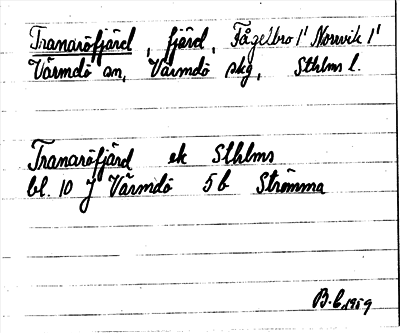 Tranaröfjärd, fjärd, Fågelbro 1' Norrvik 1'
Värmdö sn, Värmdö skg, Sthlms l.
Tranaröfjärd ek Sthlms
bl. 10 J Värmdö 5b Strömma
B.C. 1959